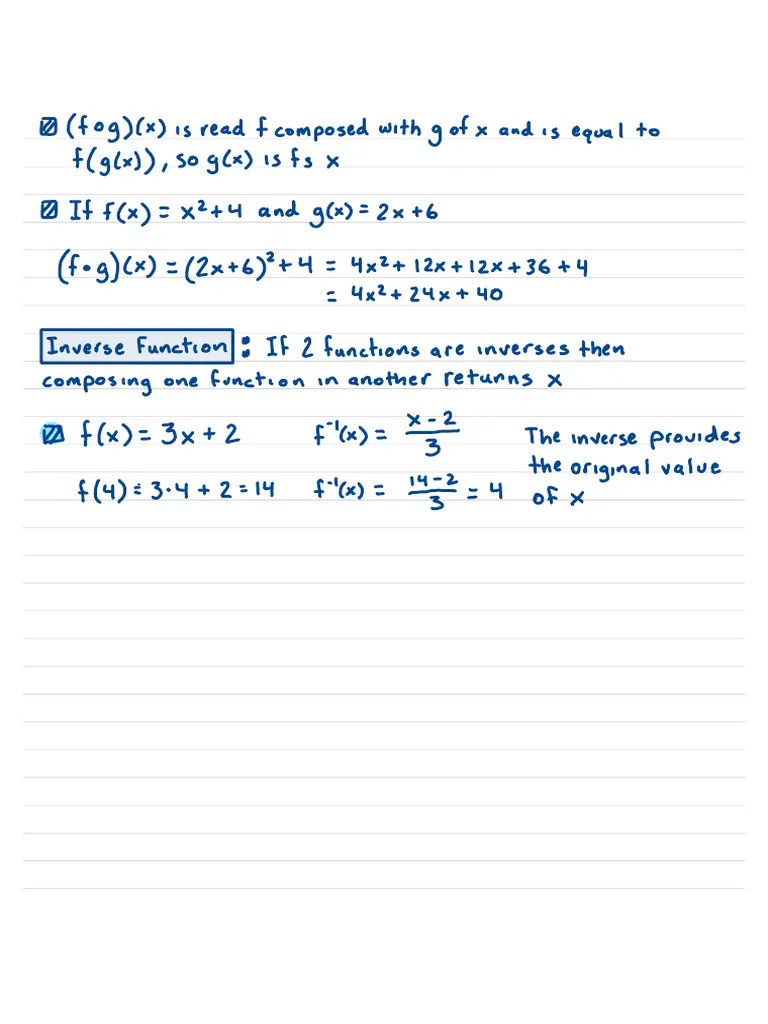 (f∘g)(x) is read f composed with g of x and is equal to
f(g(x)), so g(x) is fs x
If f(x) = x² + 4 and g(x) = 2x + 6
(f•g)(x) = (2x+6)² + 4 = 4x² + 12x + 12x + 36 + 4
= 4x² + 24x + 40
Inverse Function : If 2 functions are inverses then
composing one function in another returns x
f(x) = 3x + 2 f⁻¹(x) = (x - 2)/3 The inverse provides
the original value
f(4) = 3·4 + 2 = 14 f⁻¹(x) = (14 - 2)/3 = 4 of x